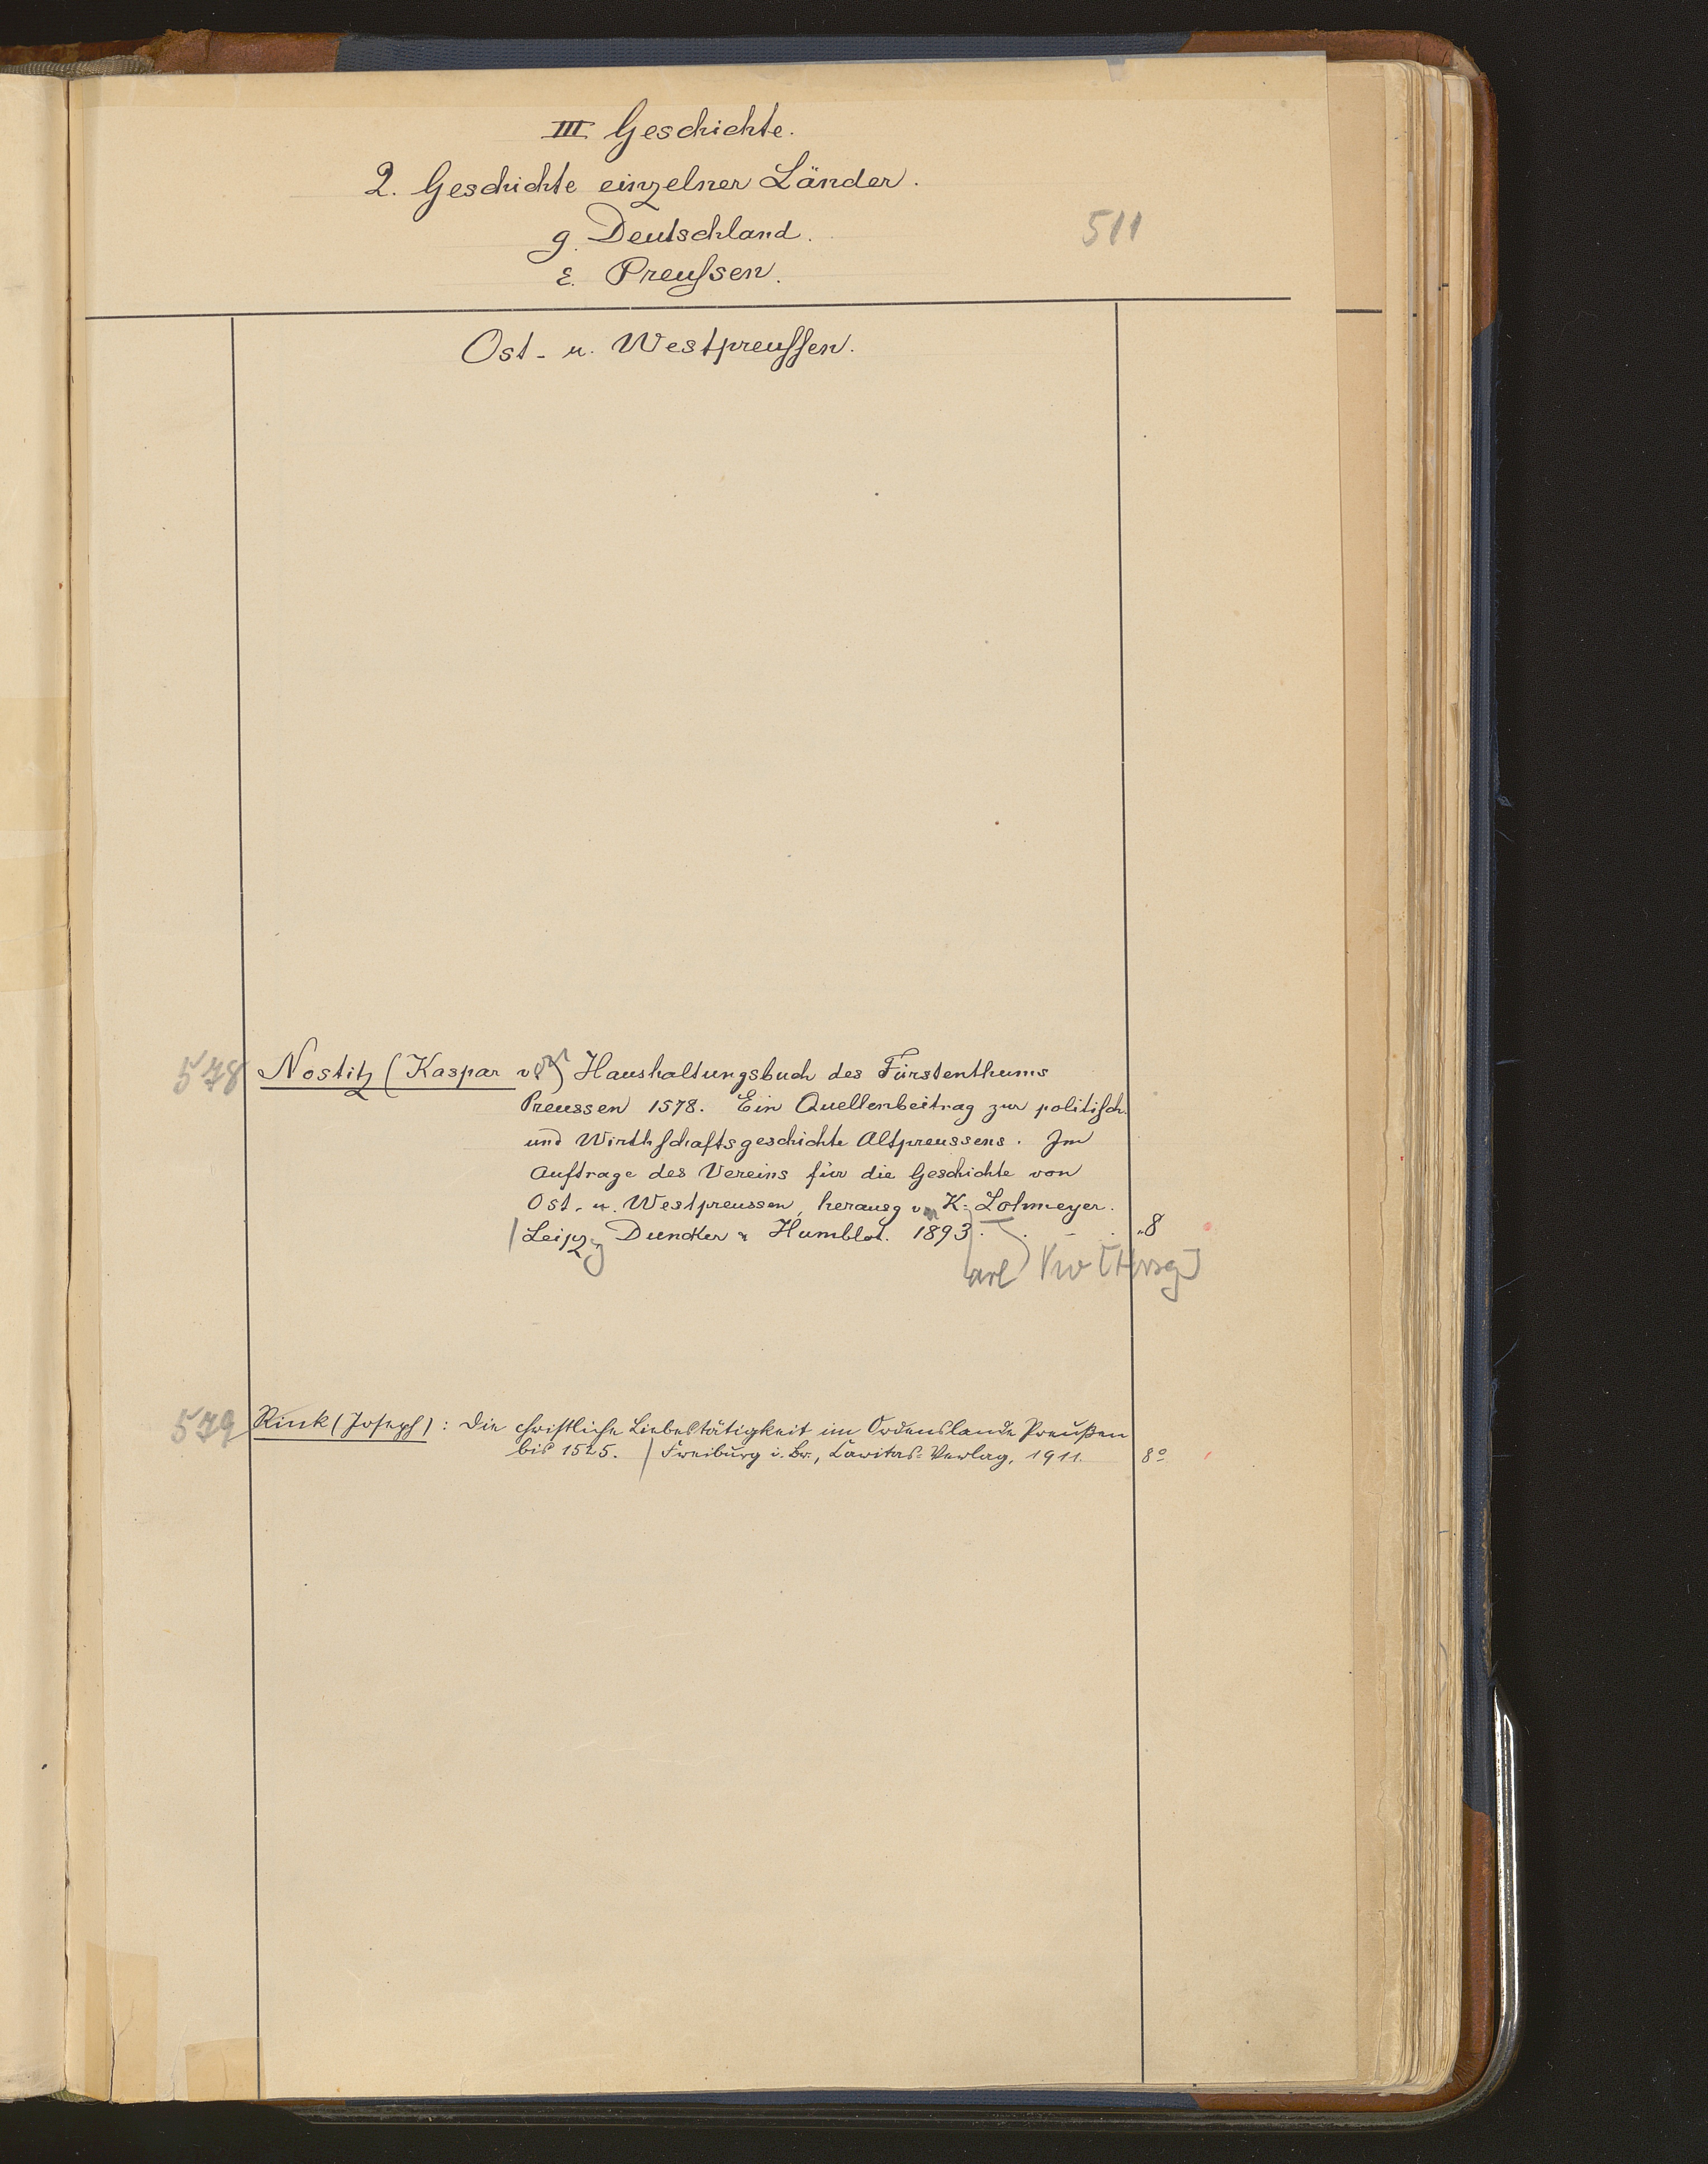 III Geschichte.
2. Geschichte einzelner Länder.
g. Deutschland.
511
ε. Preussen.
Ost- u. Westpreussen.
578 Nostitz (Kaspar v.) Haushaltungsbuch des Fürstenthums
Preussen 1578. Ein Quellenbeitrag zur politisch.
und Wirthschaftsgeschichte Altpreussens. Im
Auftrage des Vereins für die Geschichte von
Ost- u. Westpreussen, herausg von K. Lohmeyer.
Leipzg Duncker & Humblot. 1893. 8
arl [Hrsg]
579 Rink (Joseph): Die christliche Liebestätigkeit im Ordenslande Preußen
bis 1525. / Freiburg i. Br., Caritas-Verlag, 1911. 8°